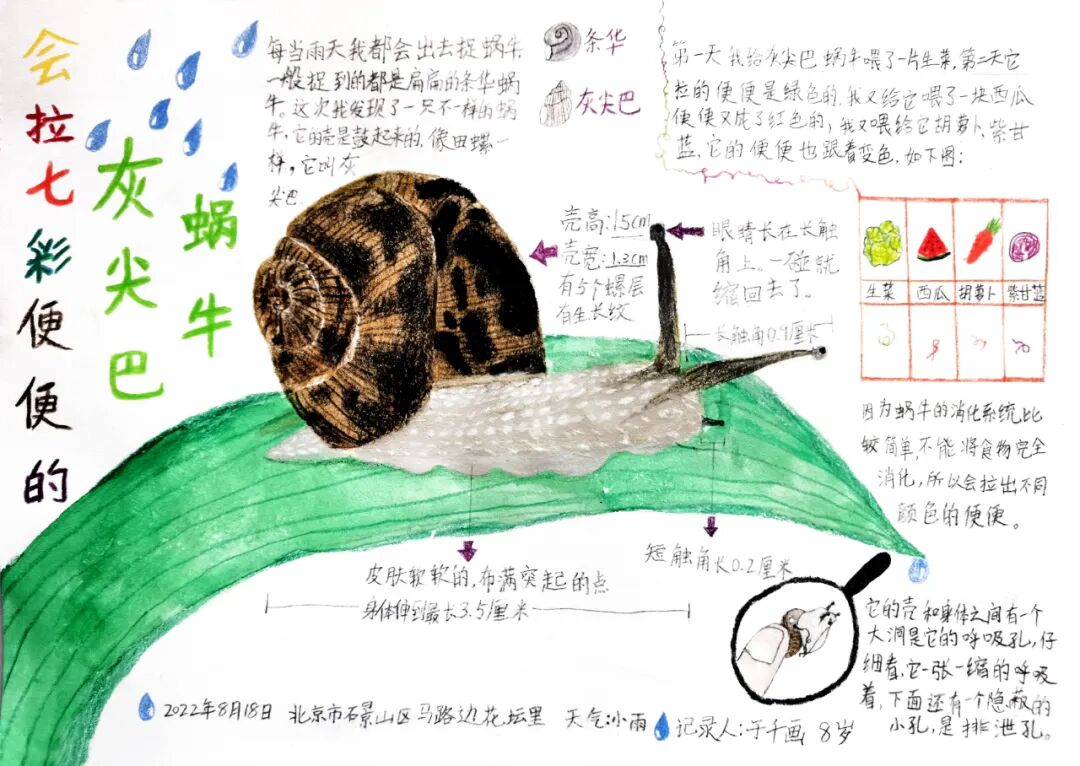 会拉七彩便便的
灰尖巴
蜗牛
每当雨天我都会出去捉蜗牛,
一般捉到的都是扁扁的条华蜗
牛。这次我发现了一只不一样的蜗
牛,它的壳是鼓起来的,像田螺一
样,它叫灰
尖巴.
条华
灰尖巴
第一天我给灰尖巴蜗牛喂了一片生菜,第二天它
拉的便便是绿色的.我又给它喂了一块西瓜
便便又成了红色的,我又喂给它胡萝卜,紫甘
蓝,它的便便也跟着变色,如下图:
壳高:1.5cm
壳宽:1.3cm
有5个螺层
有生长纹
眼睛长在长触
角上。一碰就
缩回去了。
长触角0.9厘米
生菜 西瓜 胡萝卜 紫甘蓝
因为蜗牛的消化系统比
较简单,不能将食物完全
消化,所以会拉出不同
颜色的便便。
短触角长0.2厘米
皮肤软软的,布满突起的点
身体伸到最长3.5厘米
它的壳和身体之间有一个
大洞是它的呼吸孔,仔
细看,它一张一缩的呼吸
着,下面还有一个隐蔽的
小孔,是排泄孔。
2022年8月18日 北京市石景山区马路边花坛里 天气:小雨 记录人:于千画 8岁